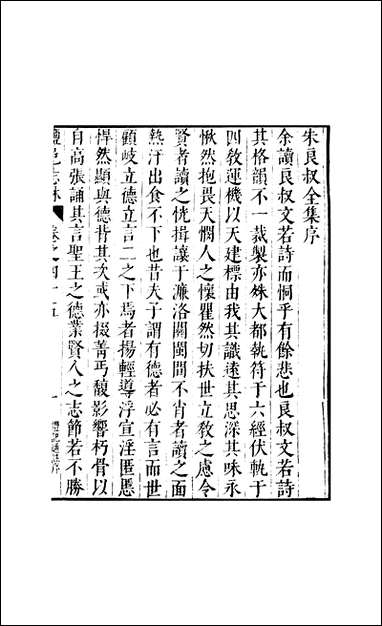 朱良叔全集序
余讀良叔文若詩而恫乎有餘悲也良叔文若詩
其格韻不一裁製亦殊大都執符于六經伏軌于
四敎運機以天建標由我其識遠其思深其味永
愀然抱畏天憫人之懷瞿然切扶世立敎之慮令
賢者讀之恍揖讓于濂洛關閩間不肖者讀之面
熱汗出食不下也昔夫子謂有德者必有言而世
顧岐立德立言二之下焉者揚輕導浮宣淫匿慝
悍然顯與德背其次或亦掇菁丐馥影響朽骨以
自高張誦其言聖王之德業賢人之志節若不勝
鹽邑志林
卷之四十五
一